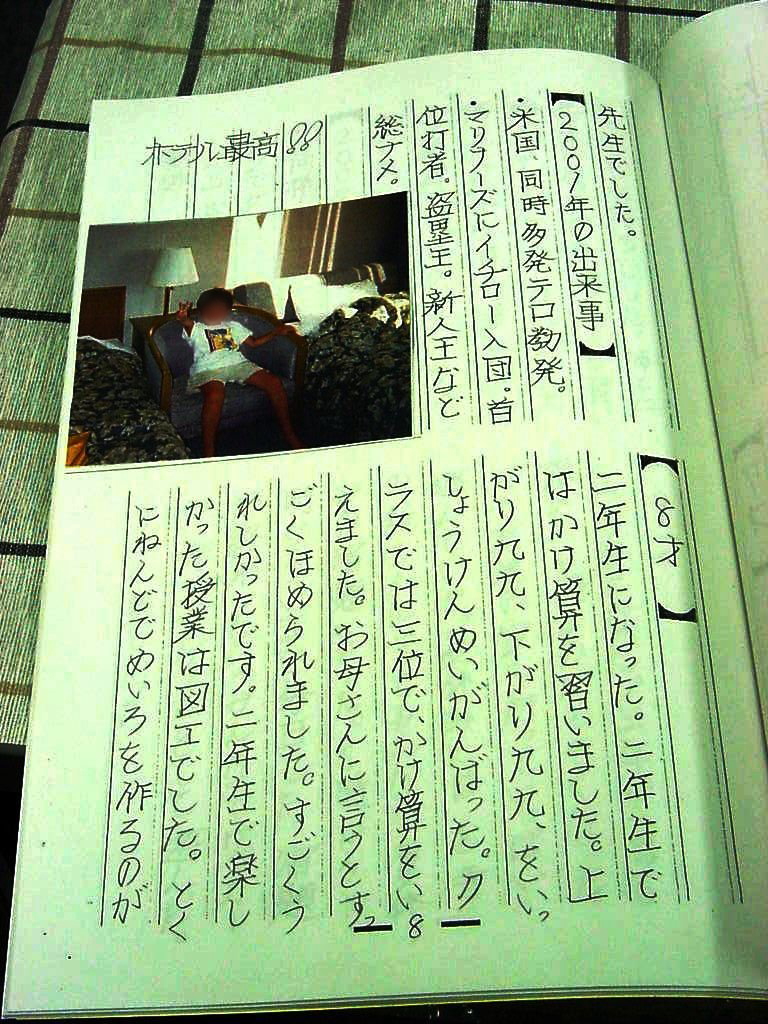 先生でした。
【2001年の出来事】
・米国、同時多発テロ勃発。
・マリナーズにイチロー入団。首
位打者。盗塁王。新人王など
総ナメ。
ホテル最高
【8才】
二年生になった。二年生で
はかけ算を習いました。上
がり九九、下がり九九、をいっ
しょうけんめいがんばった。ク
ラスでは三位で、かけ算をい
えました。お母さんに言うとす
ごくほめられました。すごくう
れしかったです。二年生で楽し
かった授業は図工でした。とく
にねんどでめいろを作るのが
8